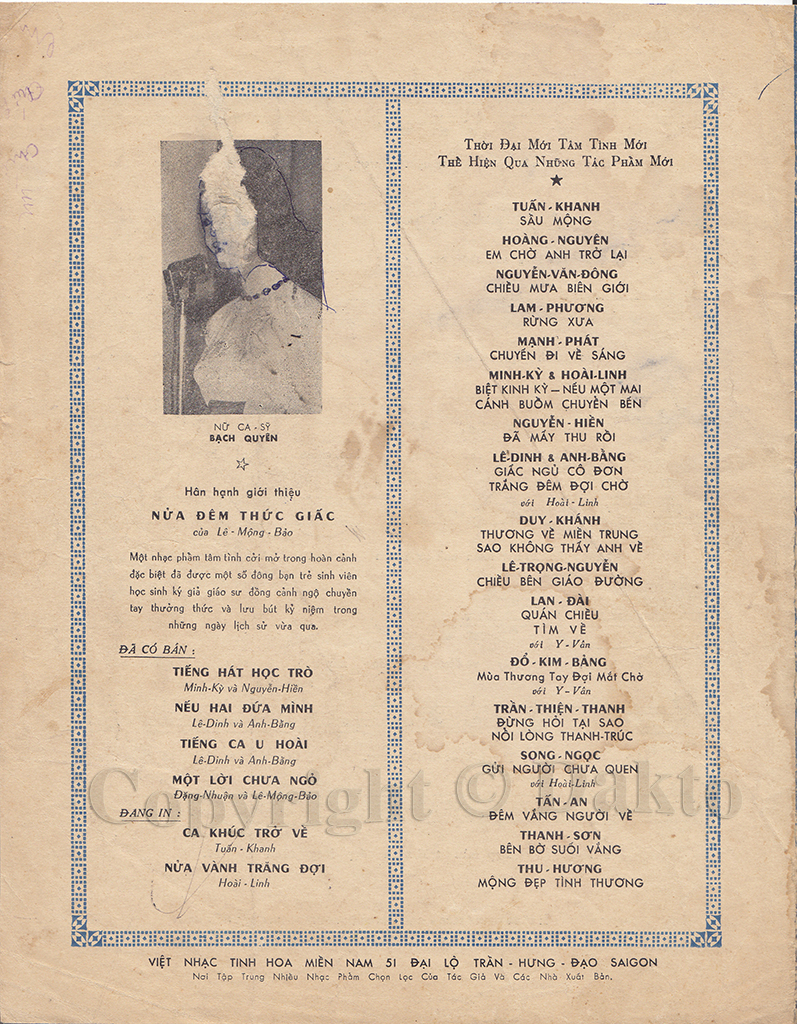 NỮ CA - SỸ
BẠCH QUYÊN
Hân hạnh giới thiệu
NỬA ĐÊM THỨC GIẤC
của Lê - Mộng - Bảo
Một nhạc phẩm tâm tình cởi mở trong hoàn cảnh
đặc biệt đã được một số đông bạn trẻ sinh viên
học sinh ký giả giáo sư đồng cảnh ngộ chuyền
tay thưởng thức và lưu bút kỷ niệm trong
những ngày lịch sử vừa qua.
ĐÃ CÓ BÁN :
TIẾNG HÁT HỌC TRÒ
Minh-Kỳ và Nguyễn-Hiền
NẾU HAI ĐỨA MÌNH
Lê-Dinh và Anh-Bằng
TIẾNG CA U HOÀI
Lê-Dinh và Anh-Bằng
MỘT LỜI CHƯA NGỎ
Đặng-Nhuận và Lê-Mộng-Bảo
ĐANG IN :
CA KHÚC TRỞ VỀ
Tuấn - Khanh
NỬA VÀNH TRĂNG ĐỢI
Hoài - Linh
THỜI ĐẠI MỚI TÂM TÌNH MỚI
THỂ HIỆN QUA NHỮNG TÁC PHẨM MỚI
TUẤN - KHANH
SẦU MỘNG
HOÀNG - NGUYÊN
EM CHỜ ANH TRỞ LẠI
NGUYỄN-VĂN-ĐÔNG
CHIỀU MƯA BIÊN GIỚI
LAM - PHƯƠNG
RỪNG XƯA
MẠNH - PHÁT
CHUYẾN ĐI VỀ SÁNG
MINH-KỲ & HOÀI-LINH
BIỆT KINH KỲ — NẾU MỘT MAI
CÁNH BUỒM CHUYỂN BẾN
NGUYỄN - HIỀN
ĐÃ MẤY THU RỒI
LÊ-DINH & ANH-BẰNG
GIẤC NGỦ CÔ ĐƠN
TRẮNG ĐÊM ĐỢI CHỜ
với Hoài - Linh
DUY - KHÁNH
THƯƠNG VỀ MIỀN TRUNG
SAO KHÔNG THẤY ANH VỀ
LÊ-TRỌNG-NGUYỄN
CHIỀU BÊN GIÁO ĐƯỜNG
LAN - ĐÀI
QUÁN CHIỀU
TÌM VỀ
với Y - Vân
ĐỖ - KIM - BẢNG
Mùa Thương Tay Đợi Mắt Chờ
với Y - Vân
TRẦN - THIỆN - THANH
ĐỪNG HỎI TẠI SAO
NỖI LÒNG THANH-TRÚC
SONG - NGỌC
GỬI NGƯỜI CHƯA QUEN
với Hoài-Linh
TẤN - AN
ĐÊM VẮNG NGƯỜI VỀ
THANH - SƠN
BÊN BỜ SUỐI VẮNG
THU - HƯƠNG
MỘNG ĐẸP TÌNH THƯƠNG
VIỆT NHẠC TINH HOA MIỀN NAM 51 ĐẠI LỘ TRẦN - HƯNG - ĐẠO SAIGON
Nơi Tập Trung Nhiều Nhạc Phẩm Chọn Lọc Của Tác Giả Và Các Nhà Xuất Bản.
Copyright ©